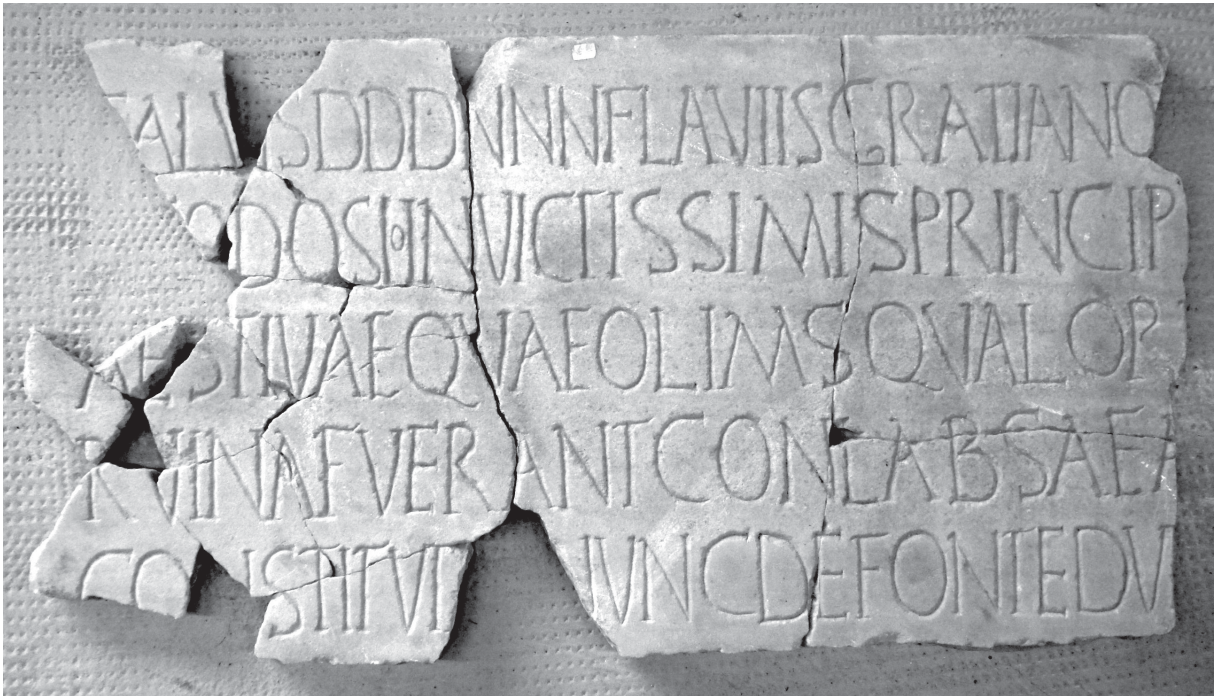 TALVIS DDD NNN FLAVIIS GRATIANO
ODOSIO INVICTISSIMIS PRINCIP
AESTIVAE QVAE OLIM SQVAL OP
RVINA FVERANT CONLABSAE
CONSTITVI NVNC DE FONTE DV